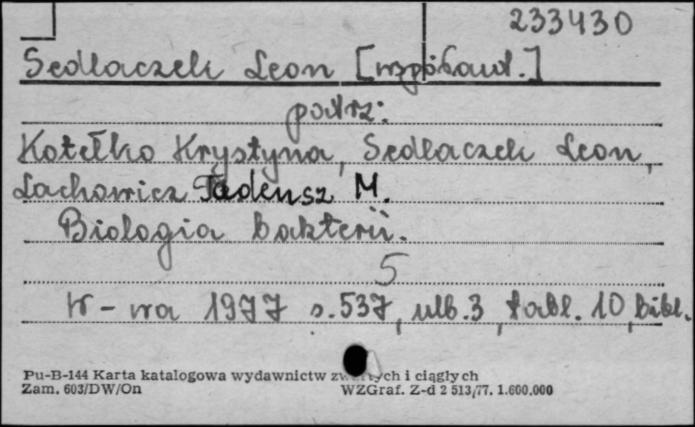 233430
Sedlaczek Leon [współaut.]
patrz:
Kotełko Krystyna, Sedlaczek Leon,
Lachowicz Tadeusz M.
Biologia bakterii.
5
W-wa 1977 s.537, ulb.3, tabl. 10, bibl.
Pu-B-144 Karta katalogowa wydawnictw zwartych i ciągłych
Zam. 603/DW/On WZGraf. Z-d 2 513/77. 1.600.000